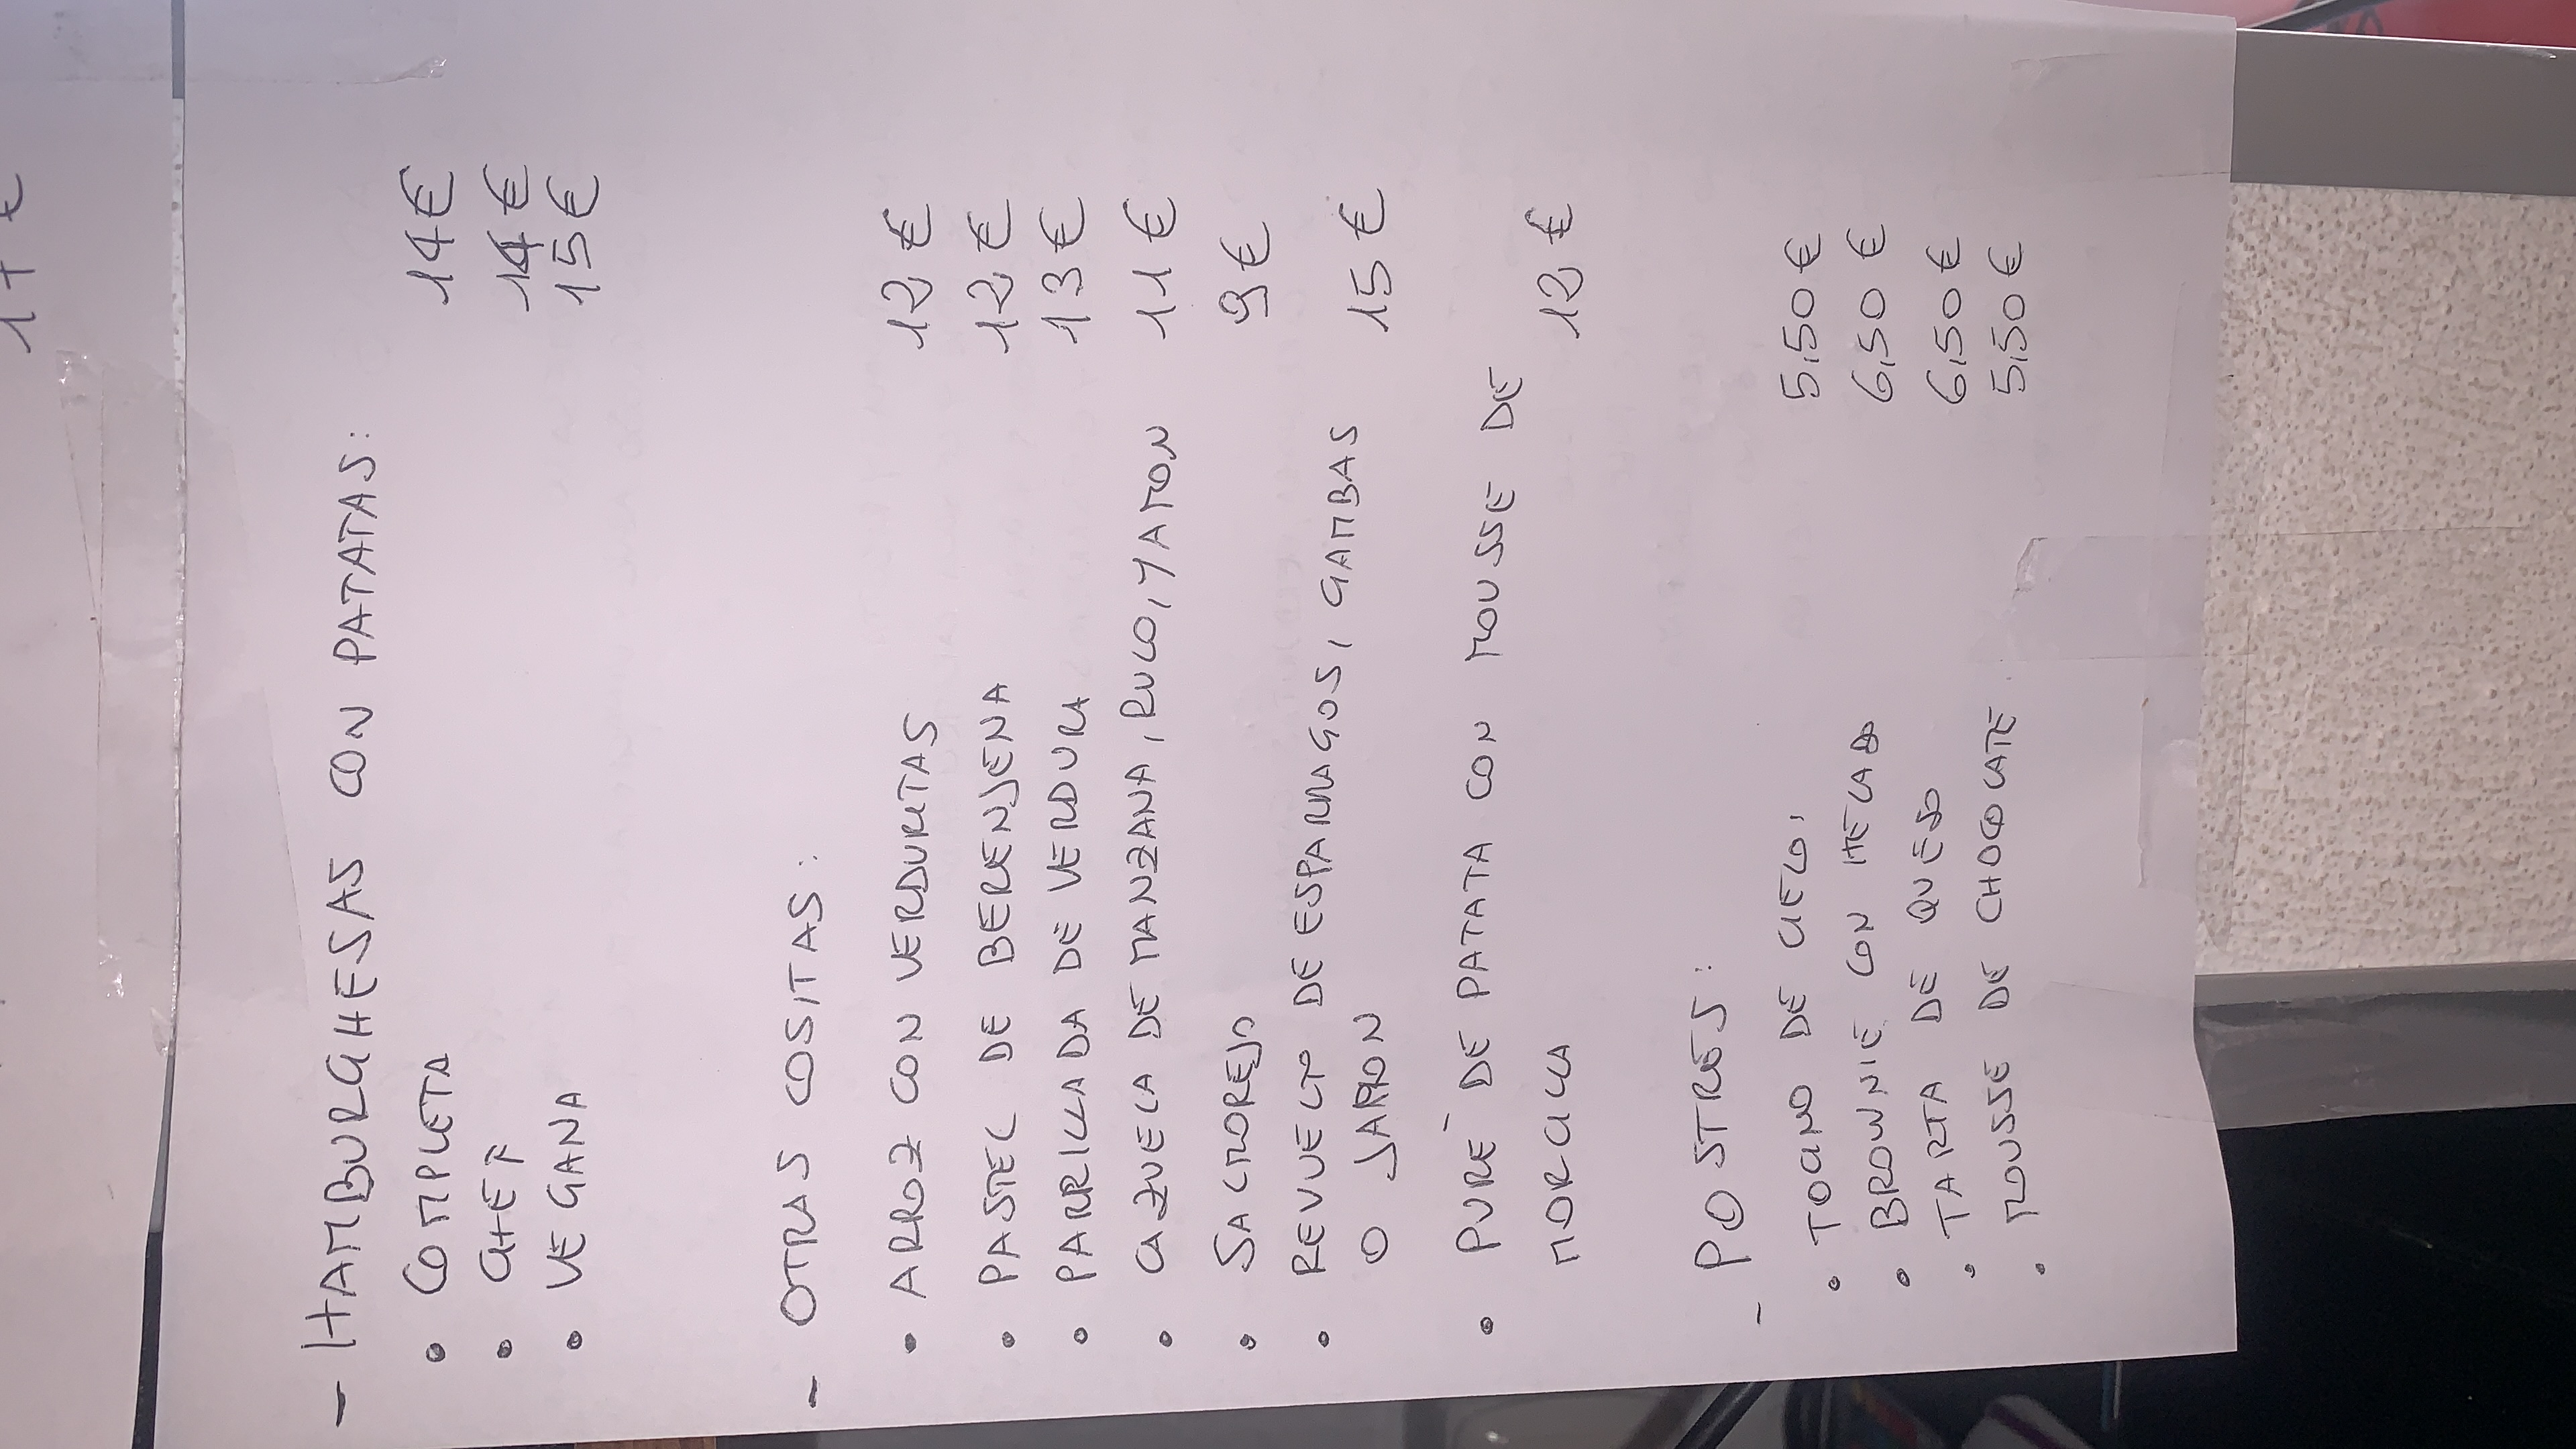 17€
- HAMBURGHESAS CON PATATAS:
• COMPLETA 14€
• CHEF 14€
• VEGANA 15€
- OTRAS COSITAS:
• ARROZ CON VERDURITAS 12€
• PASTEL DE BERENJENA 12€
• PARRILLADA DE VERDURA 13€
• CAZUELA DE MANZANA, RULO, YAMON 11€
• SALMOREJO 9€
• REVUELTO DE ESPARRAGOS, GAMBAS
O JAMON 15€
• PURÉ DE PATATA CON MOUSSE DE
MORCILLA 12€
- POSTRES:
• TOCINO DE CIELO, 5,50€
• BROWNIE CON HELADO 6,50€
• TARTA DE QUESO 6,50€
• MOUSSE DE CHOCOLATE 5,50€